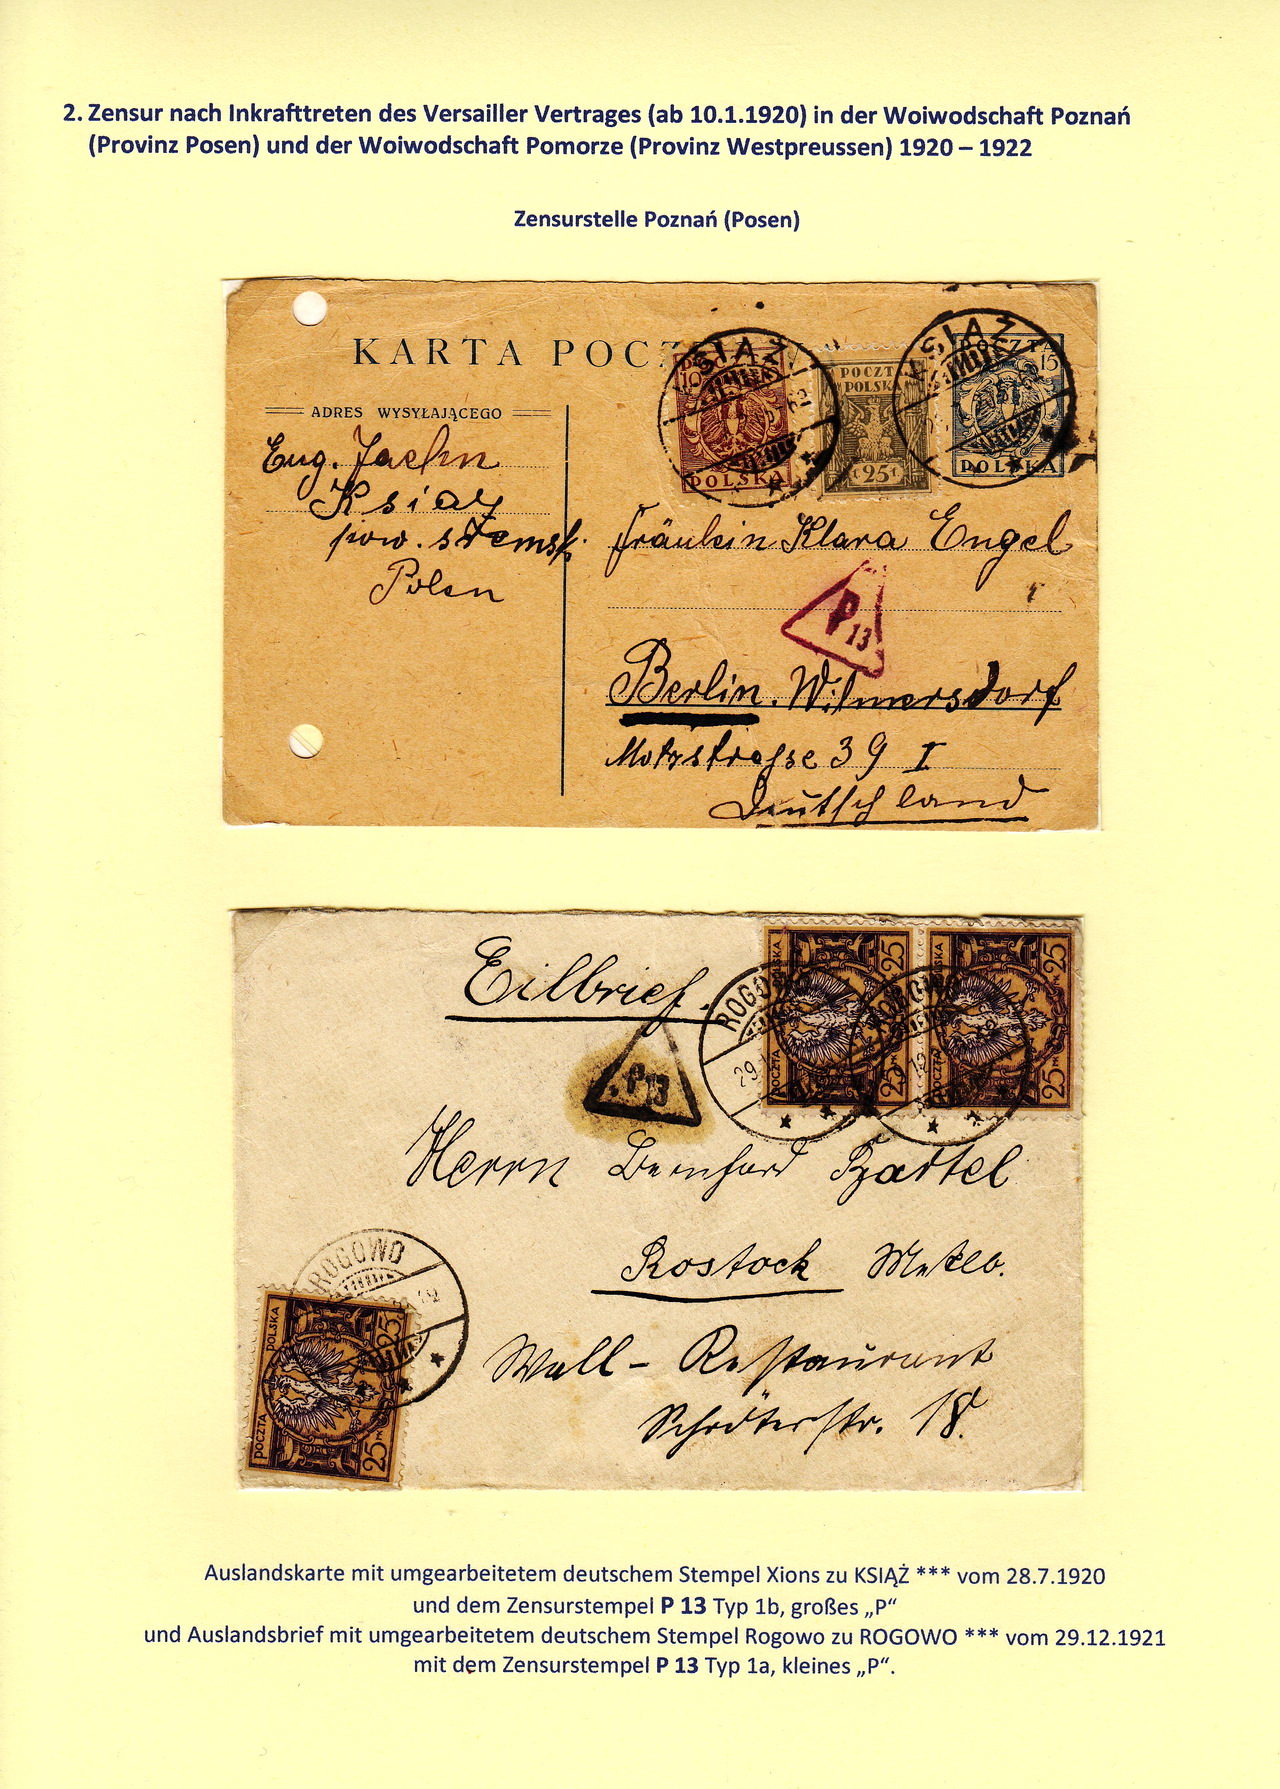 2. Zensur nach Inkrafttreten des Versailler Vertrages (ab 10.1.1920) in der Woiwodschaft Poznań
(Provinz Posen) und der Woiwodschaft Pomorze (Provinz Westpreussen) 1920 – 1922
Zensurstelle Poznań (Posen)
KARTA POCZ
KSIĄŻ
KSIĄŻ
10
POLSKA
POCZTA
POLSKA
25
POCZTA
15
POLSKA
ADRES WYSYŁAJĄCEGO
Eug. Jaehn
Książ
pow.
Polen
Fräulein Klara Engel
P 13
Berlin. Wilmersdorf
Motzstrasse 39 I
Deutschland
Eilbrief.
ROGOWO
ROGOWO
POCZTA POLSKA
25 25
POCZTA POLSKA
25 25
29
P 13
Herrn Bernhard Bartel
Rostock Meklb.
Wall-Restaurant
Schröterstr. 18.
ROGOWO
POCZTA POLSKA
25 25
Auslandskarte mit umgearbeitetem deutschem Stempel Xions zu KSIĄŻ *** vom 28.7.1920
und dem Zensurstempel P 13 Typ 1b, großes „P“
und Auslandsbrief mit umgearbeitetem deutschem Stempel Rogowo zu ROGOWO *** vom 29.12.1921
mit dem Zensurstempel P 13 Typ 1a, kleines „P“.